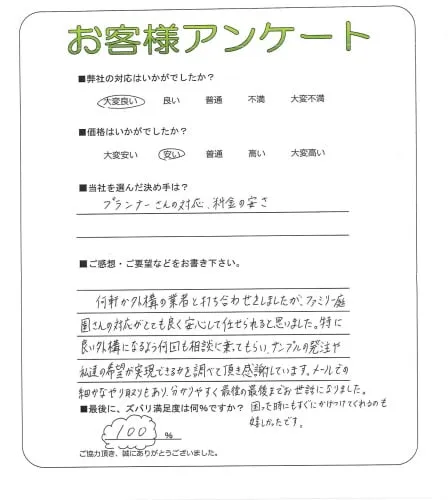 お客様アンケート
■弊社の対応はいかがでしたか?
大変良い 良い 普通 不満 大変不満
■価格はいかがでしたか?
大変安い 安い 普通 高い 大変高い
■当社を選んだ決め手は?
プランナーさんの対応、料金の安さ
■ご感想・ご要望などをお書き下さい。
何軒か外構の業者と打ち合わせをしましたが、ファミリー庭
園さんの対応がとても良く安心して任せられると思いました。特に
良い外構になるよう何回も相談に乗ってもらい、サンプルの発注や
私達の希望が実現できるかを調べて頂き感謝しています。メールでの
細かなやり取りもあり、分かりやすく最後の最後までお世話になりました。
■最後に、ズバリ満足度は何%ですか? 困った時にもすぐにかけつけてくれるのも
嬉しかったです。
100 %
ご協力頂き、誠にありがとうございました。